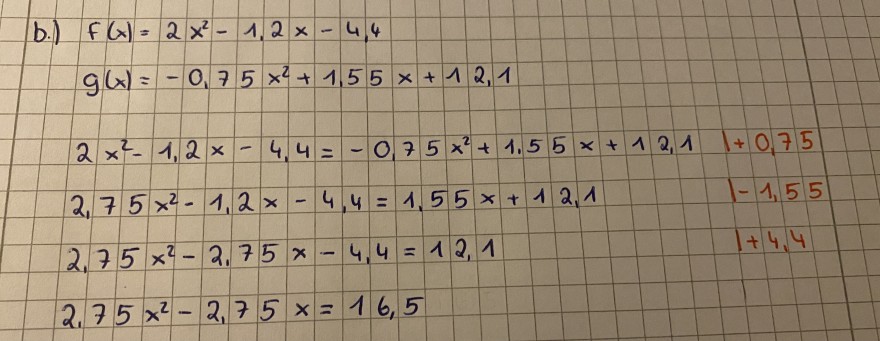 b.) f(x) = 2x² - 1,2x - 4,4
g(x) = -0,75x² + 1,55x + 12,1
2x² - 1,2x - 4,4 = -0,75x² + 1,55x + 12,1 |+0,75
2,75x² - 1,2x - 4,4 = 1,55x + 12,1 |-1,55
2,75x² - 2,75x - 4,4 = 12,1 |+4,4
2,75x² - 2,75x = 16,5